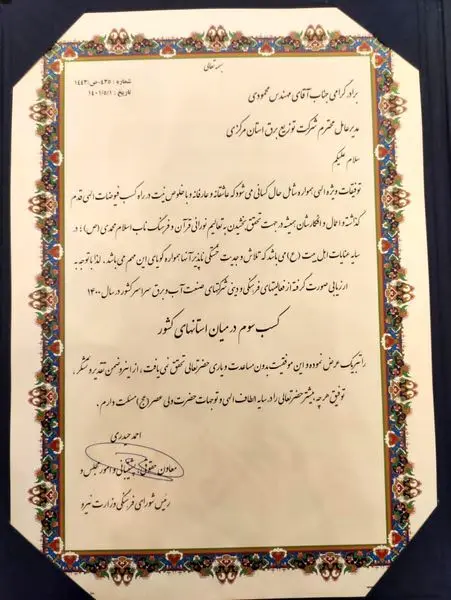 بسمه تعالی
شماره : ۴۳۵-ص/۱۴۴۳
تاریخ : ۱۴۰۱/۵/۱
برادر گرامی جناب آقای مهندس محمودی
مدیرعامل محترم شرکت توزیع برق استان مرکزی
سلام علیکم
توفیقات ویژه الهی همواره شامل حال کسانی می شود که عاشقانه و عارفانه و با خلوص نیت در راه کسب فیوضات الهی قدم
گذاشته و اعمال و افکارشان همیشه در جهت تحقق بخشیدن به تعالیم نورانی قرآن و فرهنگ ناب اسلام محمدی (ص) و در
سایه عنایات اهل بیت (ع) می باشد که تلاش و جدیت خستگی ناپذیر آنها همواره گویای این مهم می باشد. لذا با توجه به
ارزیابی صورت گرفته از فعالیتهای فرهنگی و دینی شرکتهای صنعت آب و برق سراسر کشور در سال ۱۴۰۰
کسب سوم در میان استانهای کشور
را تبریک عرض نموده و این موفقیت بدون مساعدت و یاری حضرتعالی تحقق نمی یافت ، از اینرو ضمن تقدیر و تشکر ،
توفیق هرچه بیشتر حضرتعالی را در سایه الطاف الهی و توجهات حضرت ولی عصر (عج) مسئلت دارم .
احمد حیدری
معاون حقوقی، پشتیبانی و امور مجلس و
رئیس شورای فرهنگی وزارت نیرو